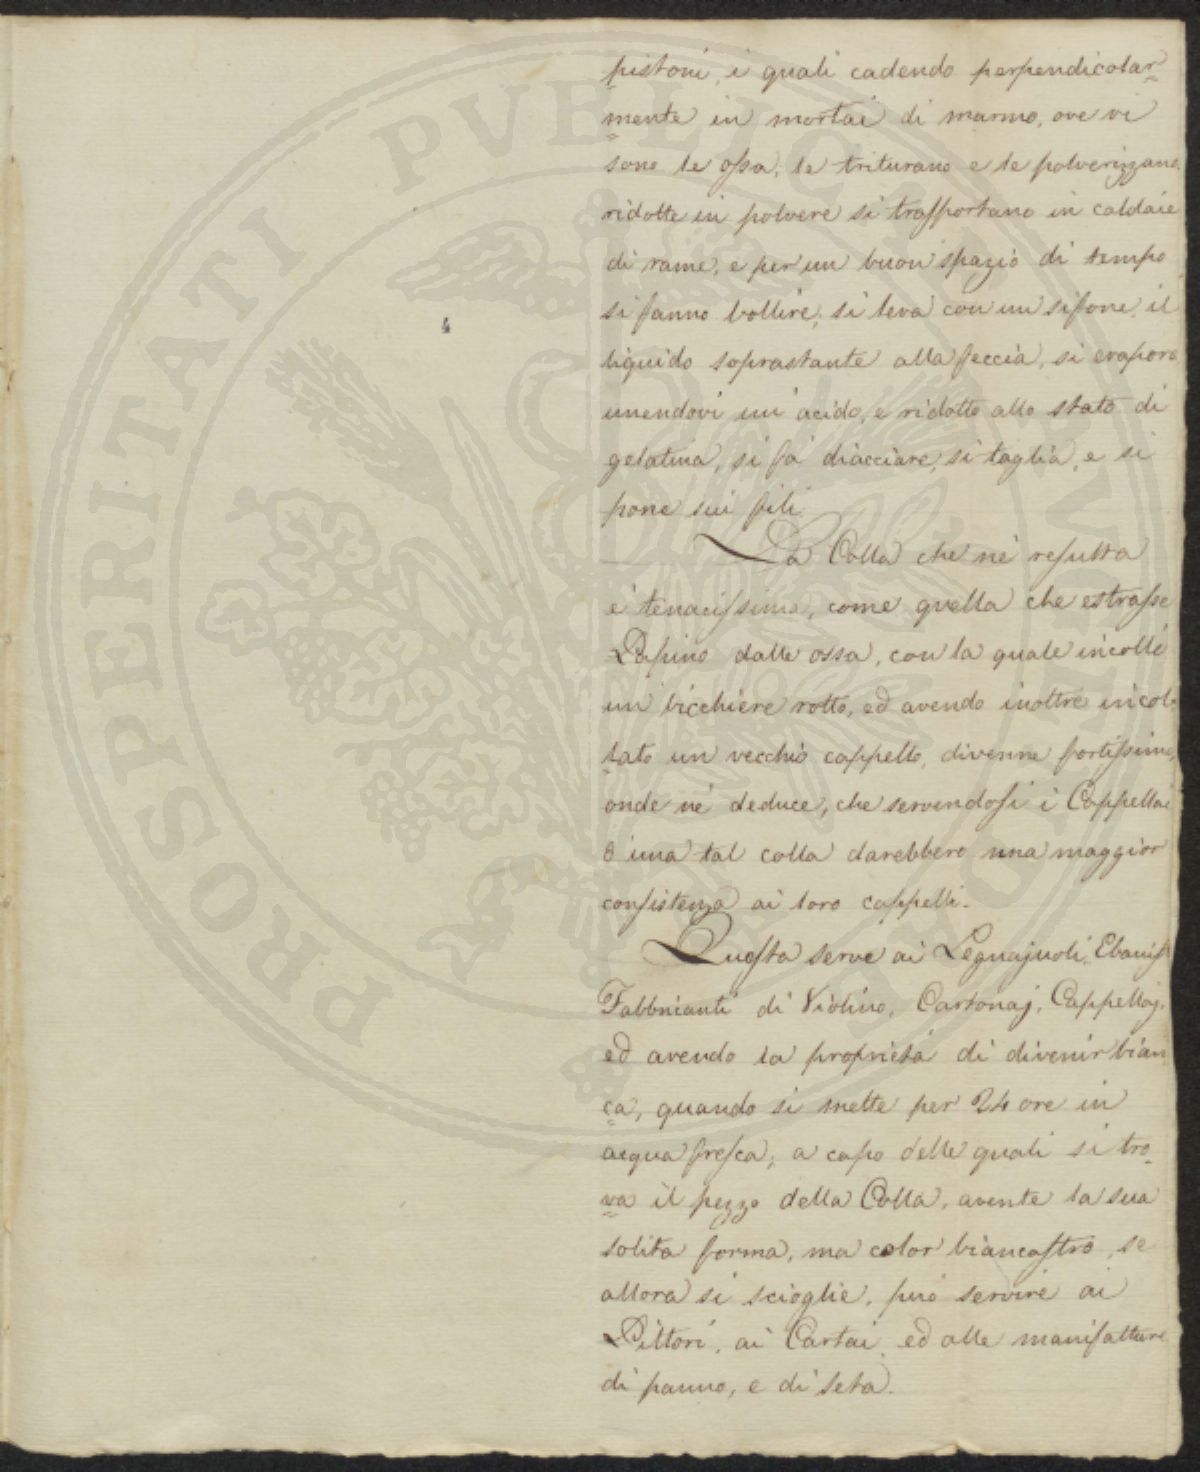 pistoni, i quali cadendo perpendicolar=
mente in mortai di marmo, ove vi
sono le ossa, le triturano e le polverizzano,
ridotte in polvere si trasportano in caldaie
di rame, e per un buon spazio di tempo
si fanno bollire, si leva con un sifone, il
liquido soprastante alla feccia, si evapora
unendovi un' acido, e ridotto allo stato di
gelatina, si fà diacciare, si taglia, e si
pone sui fili.
La Colla che nè resulta
è tenacissima, come quella che estrasse
Papino dalle ossa, con la quale incollò
un bicchiere rotto, ed avendo inoltre incol=
lato un vecchio cappello, divenne fortissimo,
onde nè deduce, che servendosi i Cappellai
d'una tal colla darebbero una maggior
consistenza ai loro cappelli.
Questa serve ai Legnajuoli, Ebanisti
Fabbricanti di Violino, Cartonaj, Cappellaj,
ed avendo la proprietà di divenir bian
ca, quando si mette per 24 ore in
acqua fresca, a capo delle quali si tro=
va il pezzo della Colla, avente la sua
solita forma, ma color biancastro, se
allora si scioglie, può servire ai
Pittori, ai Cartai, ed alle manifatture
di panno, e di seta.
PROSPERITATI PVBLICAE